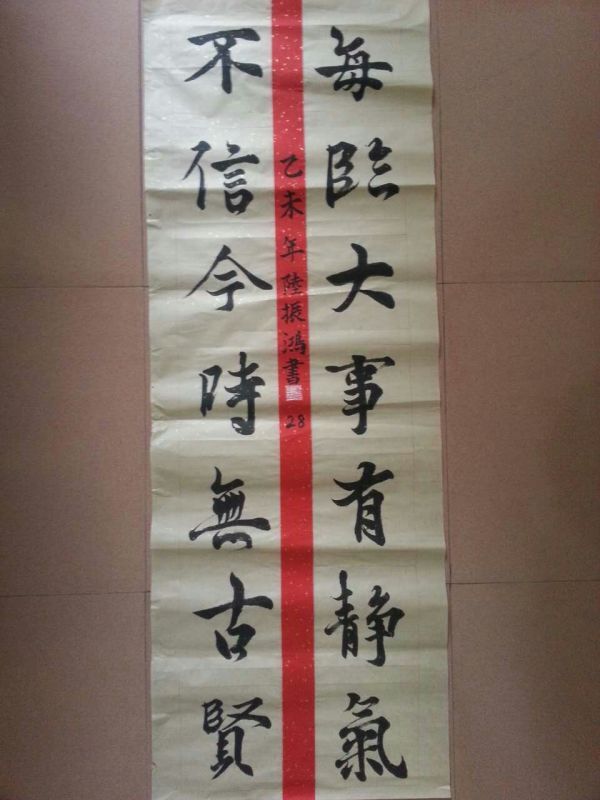 每臨大事有静氣
不信今時無古賢
乙未年陸振鴻書
28